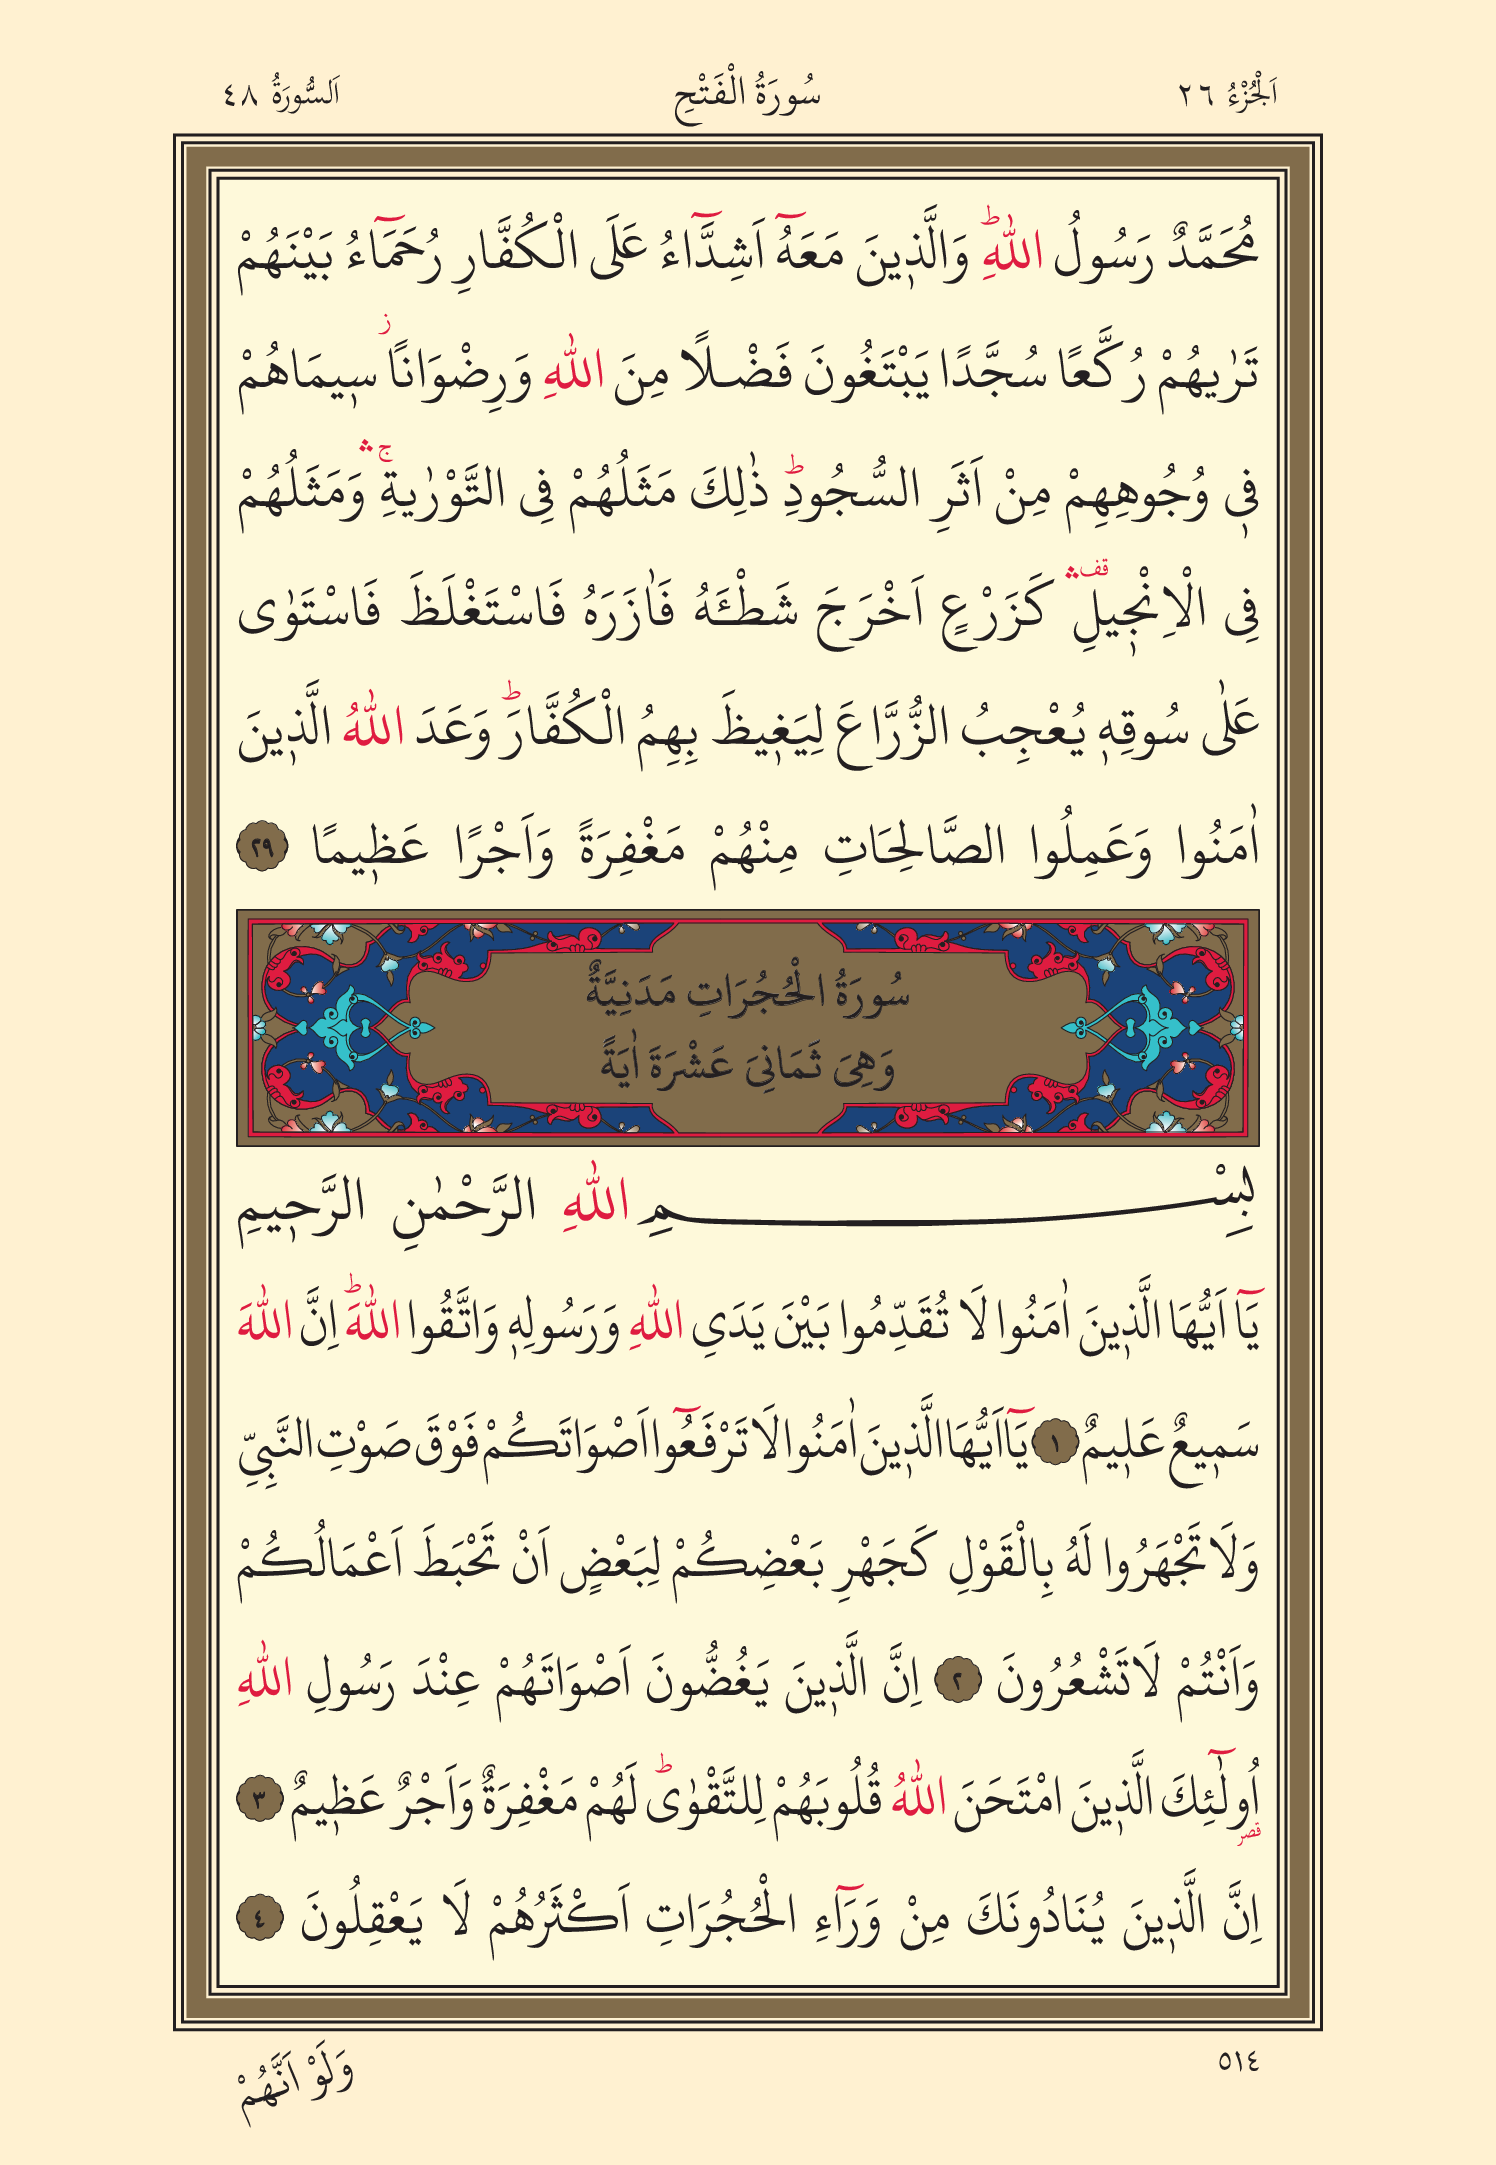 اَلْجُزْءُ ٢٦ سُورَةُ الْفَتْحِ اَلسُّورَةُ ٤٨
مُحَمَّدٌ رَسُولُ اللّٰهِۜ وَالَّذ۪ينَ مَعَهُٓ اَشِدَّٓاءُ عَلَى الْكُفَّارِ رُحَمَٓاءُ بَيْنَهُمْ
تَرٰيهُمْ رُكَّعًا سُجَّدًا يَبْتَغُونَ فَضْلًا مِنَ اللّٰهِ وَرِضْوَانًاۘ س۪يمَاهُمْ
ف۪ي وُجُوهِهِمْ مِنْ اَثَرِ السُّجُودِۜ ذٰلِكَ مَثَلُهُمْ فِى التَّوْرٰيةِۚۛ وَمَثَلُهُمْ
فِى الْاِنْج۪يلِ۠ۛ كَزَرْعٍ اَخْرَجَ شَطْـَٔهُ فَاٰزَرَهُ فَاسْتَغْلَظَ فَاسْتَوٰى
عَلٰى سُوقِه۪ يُعْجِبُ الزُّرَّاعَ لِيَغ۪يظَ بِهِمُ الْكُفَّارَۜ وَعَدَ اللّٰهُ الَّذ۪ينَ
اٰمَنُوا وَعَمِلُوا الصَّالِحَاتِ مِنْهُمْ مَغْفِرَةً وَاَجْرًا عَظ۪يمًا ٢٩
سُورَةُ الْحُجُرَاتِ مَدَنِيَّةٌ
وَهِيَ ثَمَانِيَ عَشْرَةَ اٰيَةً
بِسْمِ اللّٰهِ الرَّحْمٰنِ الرَّح۪يمِ
يَٓا اَيُّهَا الَّذ۪ينَ اٰمَنُوا لَا تُقَدِّمُوا بَيْنَ يَدَيِ اللّٰهِ وَرَسُولِه۪ وَاتَّقُوا اللّٰهَۜ اِنَّ اللّٰهَ
سَم۪يعٌ عَل۪يمٌ ١ يَٓا اَيُّهَا الَّذ۪ينَ اٰمَنُوا لَا تَرْفَعُٓوا اَصْوَاتَكُمْ فَوْقَ صَوْتِ النَّبِيِّ
وَلَا تَجْهَرُوا لَهُ بِالْقَوْلِ كَجَهْرِ بَعْضِكُمْ لِبَعْضٍ اَنْ تَحْبَطَ اَعْمَالُكُمْ
وَاَنْتُمْ لَا تَشْعُرُونَ ٢ اِنَّ الَّذ۪ينَ يَغُضُّونَ اَصْوَاتَهُمْ عِنْدَ رَسُولِ اللّٰهِ
اُو۬لٰٓئِكَ الَّذ۪ينَ امْتَحَنَ اللّٰهُ قُلُوبَهُمْ لِلتَّقْوٰىۜ لَهُمْ مَغْفِرَةٌ وَاَجْرٌ عَظ۪يمٌ ٣
اِنَّ الَّذ۪ينَ يُنَادُونَكَ مِنْ وَرَٓاءِ الْحُجُرَاتِ اَكْثَرُهُمْ لَا يَعْقِلُونَ ٤
٥١٤ وَلَوْ اَنَّهُمْ